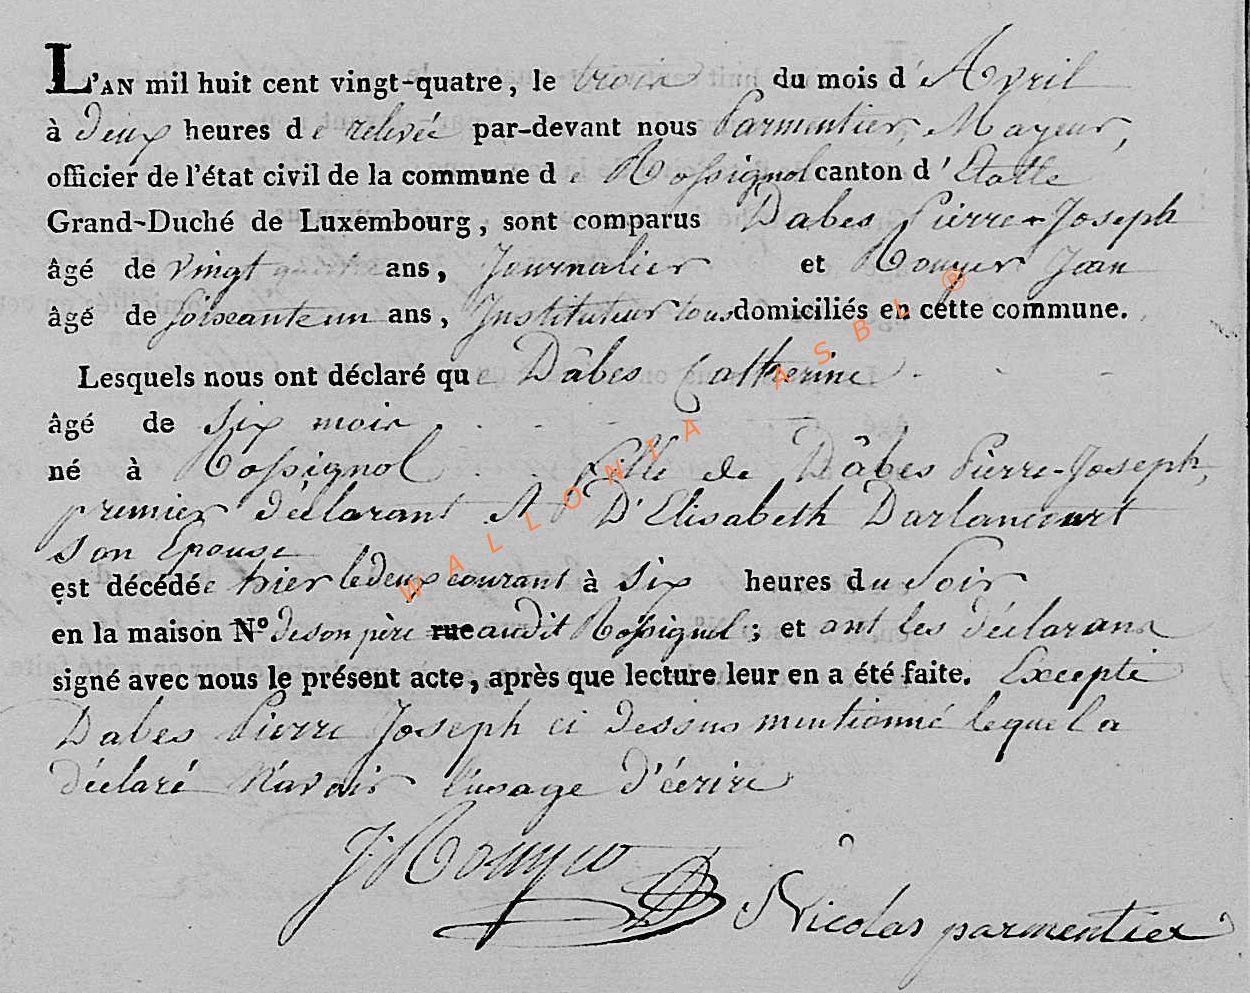 L'AN mil huit cent vingt-quatre, le trois du mois d'Avril
à deux heures de relevée par-devant nous Parmentier, Mayeur,
officier de l'état civil de la commune de Rossignol canton d'Etalle
Grand-Duché de Luxembourg, sont comparus Dabes Pierre-Joseph
âgé de vingt ans, Journalier et Rouyer Jean
âgé de soixante un ans, Instituteur tous domiciliés en cette commune.
Lesquels nous ont déclaré que Dâbes Catherine
âgé de six mois
né à Rossignol fille de Dâbes Pierre-Joseph,
premier déclarant et D'Elisabeth Darlancourt
son Epouse
est décédée hier le deux courant à six heures du Soir
en la maison N° de son père rue audit Rossignol ; et ont les déclarans
signé avec nous le présent acte, après que lecture leur en a été faite. Excepté
Dabes Pierre Joseph ci dessus mentionné lequel a
déclaré n'avoir l'usage d'écrire
J. Rouyer
Nicolas parmentier
WALLONIA ASBL ®